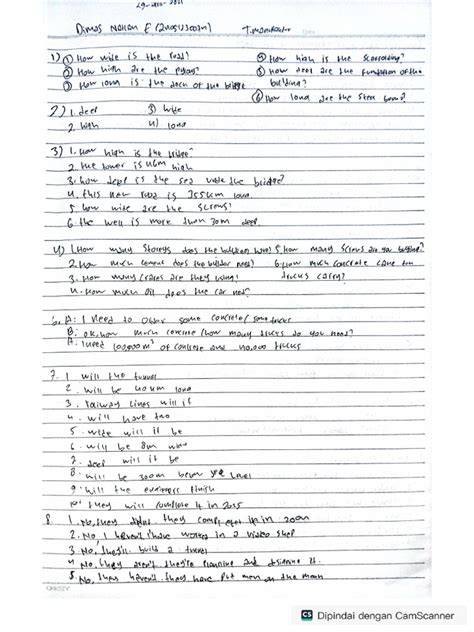 Dimas
1) ① How wide is the road? ④ How high is the scaffolding?
② How high are the pylons? ⑤ How deep are the fundation of the
③ How long is the deck of the bridge building?
⑥ How long are the steel beams?
2) 1. deep 3) wide
2. high 4) long
3) 1. How high is the bridge?
2. the tower is high
3. how deep is the sea under the bridge?
4. this new road is 355km long
5 how wide are the screws?
6 the well is more than 30m deep
4) 1. How many storeys does the building have? 5. how many screws are you
2. How much cement does the builder need? 6. How much concrete can ten
3. How many cranes are they using? trucks carry?
4. How much oil does the car need?
A: I need to order some concrete/some trucks
B: ok, how much concrete/how many trucks do you need?
A: I need of concrete and 40,000 trucks
7. 1 will the tunnel
2 will be 40 km long
3. railway lines will it
4. will have two
5. wide will it be
6. will be 8m wide
7. deep will it be
8. will be below sea level
9. will the engineers finish
10. they will complete it in
8. 1. No, they didn't they it in
2. No, I haven't I have worked in a video shop
3. No, they'll build a tunnel
4. No, they aren't they're planning and designing it.
5. No, they haven't they have put men on the moon
CS Dipindai dengan CamScanner